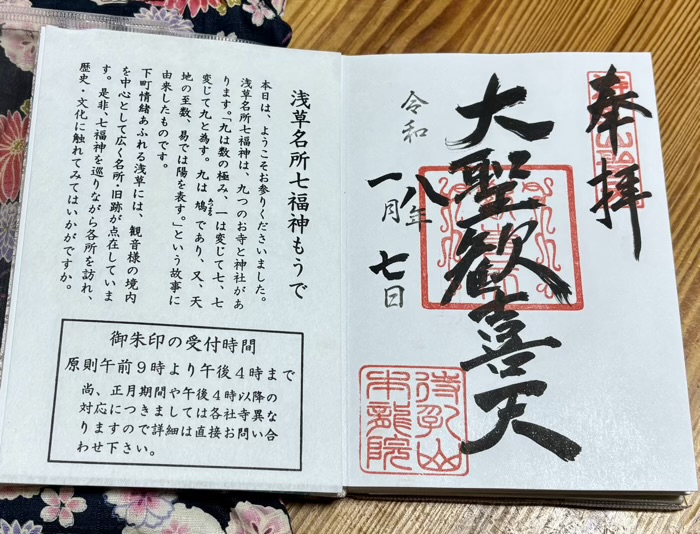 奉拝
大聖歓喜天
令和
八年
一月
七日
待乳山
本龍院
浅草名所七福神もうで
本日は、ようこそお参りくださいました。
浅草名所七福神は、九つのお寺と神社があ
ります。「九は数の極み、一は変じて七、七
変じて九と為す。九は鳩であり、又、天
地の至数、易では陽を表す。」という故事に
由来したものです。
下町情緒あふれる浅草には、観音様の境内
を中心として広く名所・旧跡が点在していま
す。是非、七福神を巡りながら各所を訪れ、
歴史・文化に触れてみてはいかがですか。
御朱印の受付時間
原則午前9時より午後4時まで
尚、正月期間や午後4時以降の
対応につきましては各社寺異な
りますので詳細は直接お問い合
わせ下さい。